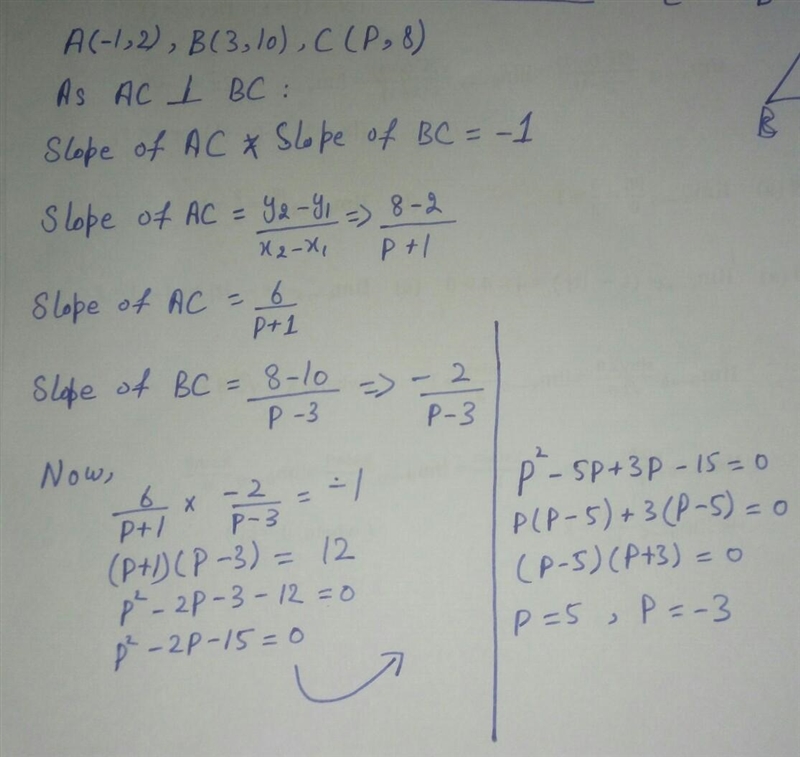 A(-1,2), B(3,10), C(P,8)
As AC ⊥ BC :
Slope of AC * Slope of BC = -1
Slope of AC = (y₂-y₁)/(x₂-x₁) => (8-2)/(P+1)
Slope of AC = 6/(P+1)
Slope of BC = (8-10)/(P-3) => - 2/(P-3)
Now,
6/(P+1) × -2/(P-3) = -1
(P+1)(P-3) = 12
P² - 2P - 3 - 12 = 0
P² - 2P - 15 = 0
P² - 5P + 3P - 15 = 0
P(P-5) + 3(P-5) = 0
(P-5)(P+3) = 0
P = 5 , P = -3
B